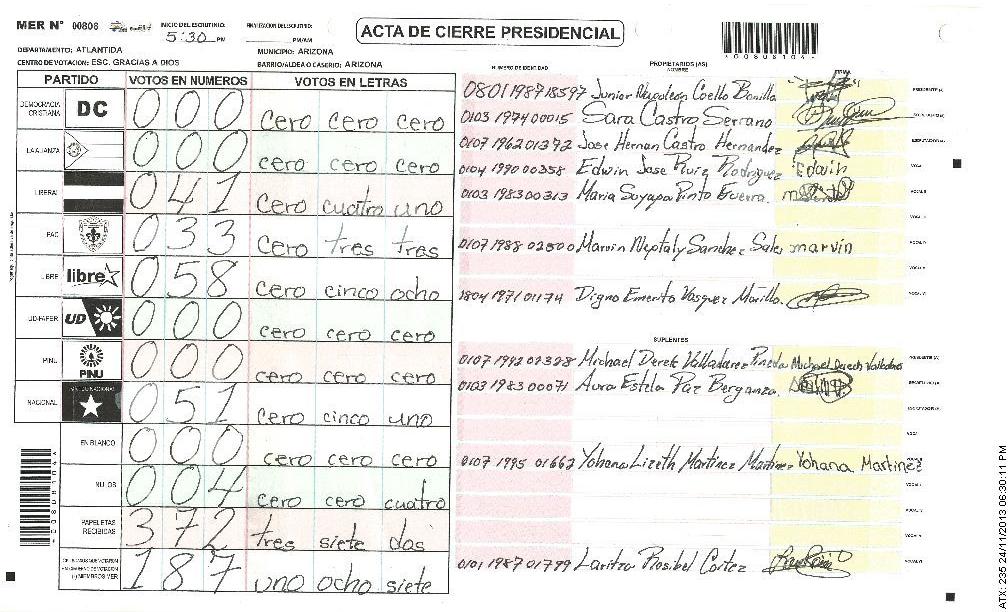 MER N° 00806
INICIO DEL ESCRUTINIO:
5:30 PM
FINALIZACION DEL ESCRUTINIO:
PM/AM
ACTA DE CIERRE PRESIDENCIAL
DEPARTAMENTO: ATLANTIDA
MUNICIPIO: ARIZONA
CENTRO DE VOTACION: ESC. GRACIAS A DIOS
BARRIO/ALDEA O CASERIO: ARIZONA
PARTIDO VOTOS EN NUMEROS VOTOS EN LETRAS
DEMOCRACIA CRISTIANA DC 0 0 0 cero cero cero
LA ALIANZA 0 0 0 cero cero cero
LIBERAL 0 4 1 cero cuatro uno
PAC 0 3 3 cero tres tres
LIBRE libre 0 5 8 cero cinco ocho
UD-FAPER UD 0 0 0 cero cero cero
PINU PINU 0 0 0 cero cero cero
NACIONAL 0 5 1 cero cinco uno
EN BLANCO 0 0 0 cero cero cero
NULOS 0 0 4 cero cero cuatro
PAPELETAS RECIBIDAS 3 7 2 tres siete dos
1 8 7 uno ocho siete
NUMERO DE IDENTIDAD PROPIETARIOS (AS) NOMBRE FIRMA
0801198718597 Junior Napoleon Coello Bonilla
0103 1974 00015 Sara Castro Serrano
0107 1962 01372 Jose Hernan Castro Hernandez
0104 1990 00358 Edwin Jose Ruiz Rodriguez Edwin
0103 1983 00313 Maria Suyapa Pinto Guerra
0107 1988 02500 Marvin Neptaly Sanchez Sales marvin
1804 1971 01174 Digno Emerito Vasquez Murillo
SUPLENTES
0107 1992 02328 Michael Derek Valladarez Pineda Michael Dereck Valladares
0103 1983 00071 Aura Estela Paz Berganza
0107 1995 01662 Yohana Lizeth Martinez Martinez Yohana Martinez
0101 1987 01799 Laritza Rosibel Cortez
*00808104*
ATX: 235 24/11/2013 06:30:11 PM